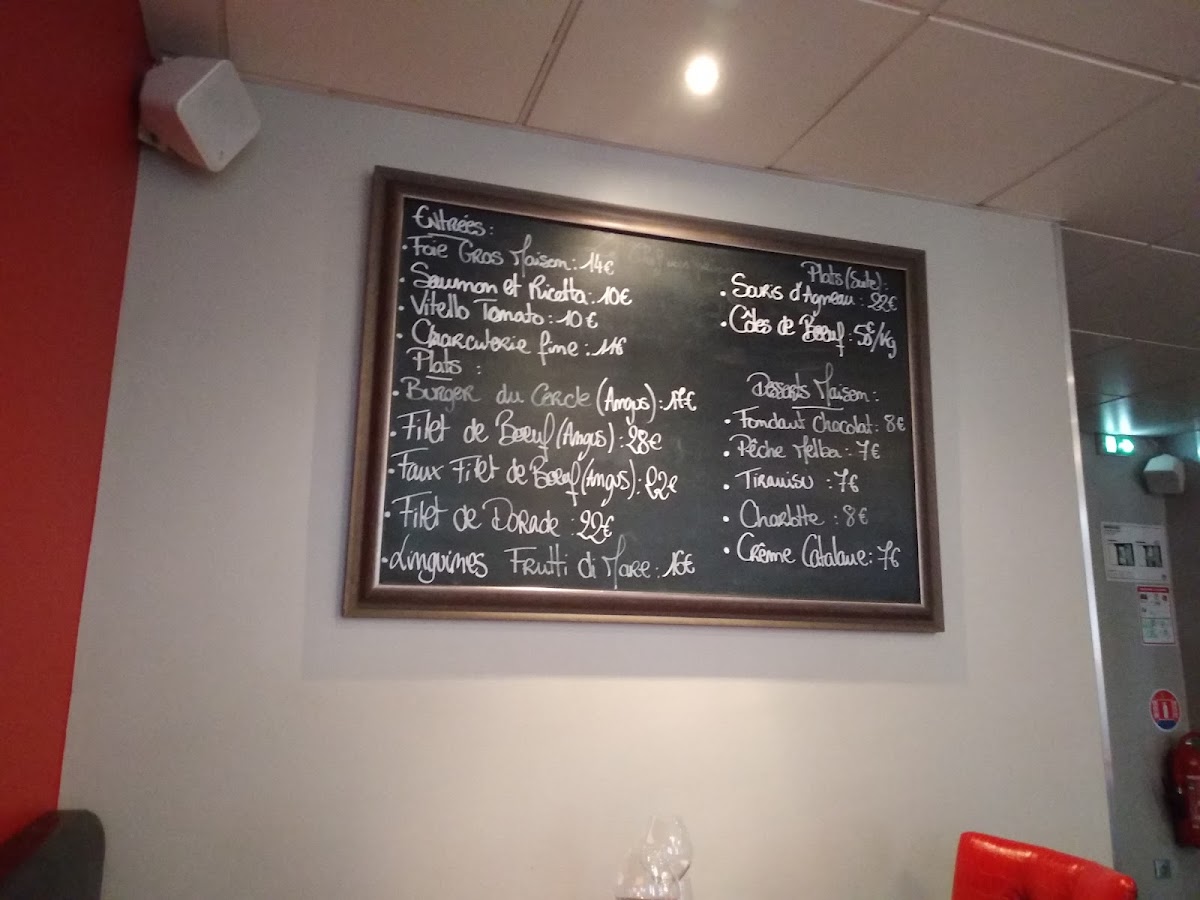 Entrées :
• Foie Gras Maison : 14€
• Saumon et Ricotta : 10€
• Vitello Tomato : 10€
• Charcuterie fine : 11€
Plats :
• Burger du Cercle (Angus) : 17€
• Filet de Boeuf (Angus) : 28€
• Faux Filet de Boeuf (Angus) : 22€
• Filet de Dorade : 22€
• Linguines Frutti di Mare : 16€
Plats (Suite) :
• Souris d'Agneau : 22€
• Côtes de Boeuf : 58€/Kg
Desserts Maison :
• Fondant Chocolat : 8€
• Pêche Melba : 7€
• Tiramisu : 7€
• Charlotte : 8€
• Crème Catalane : 7€